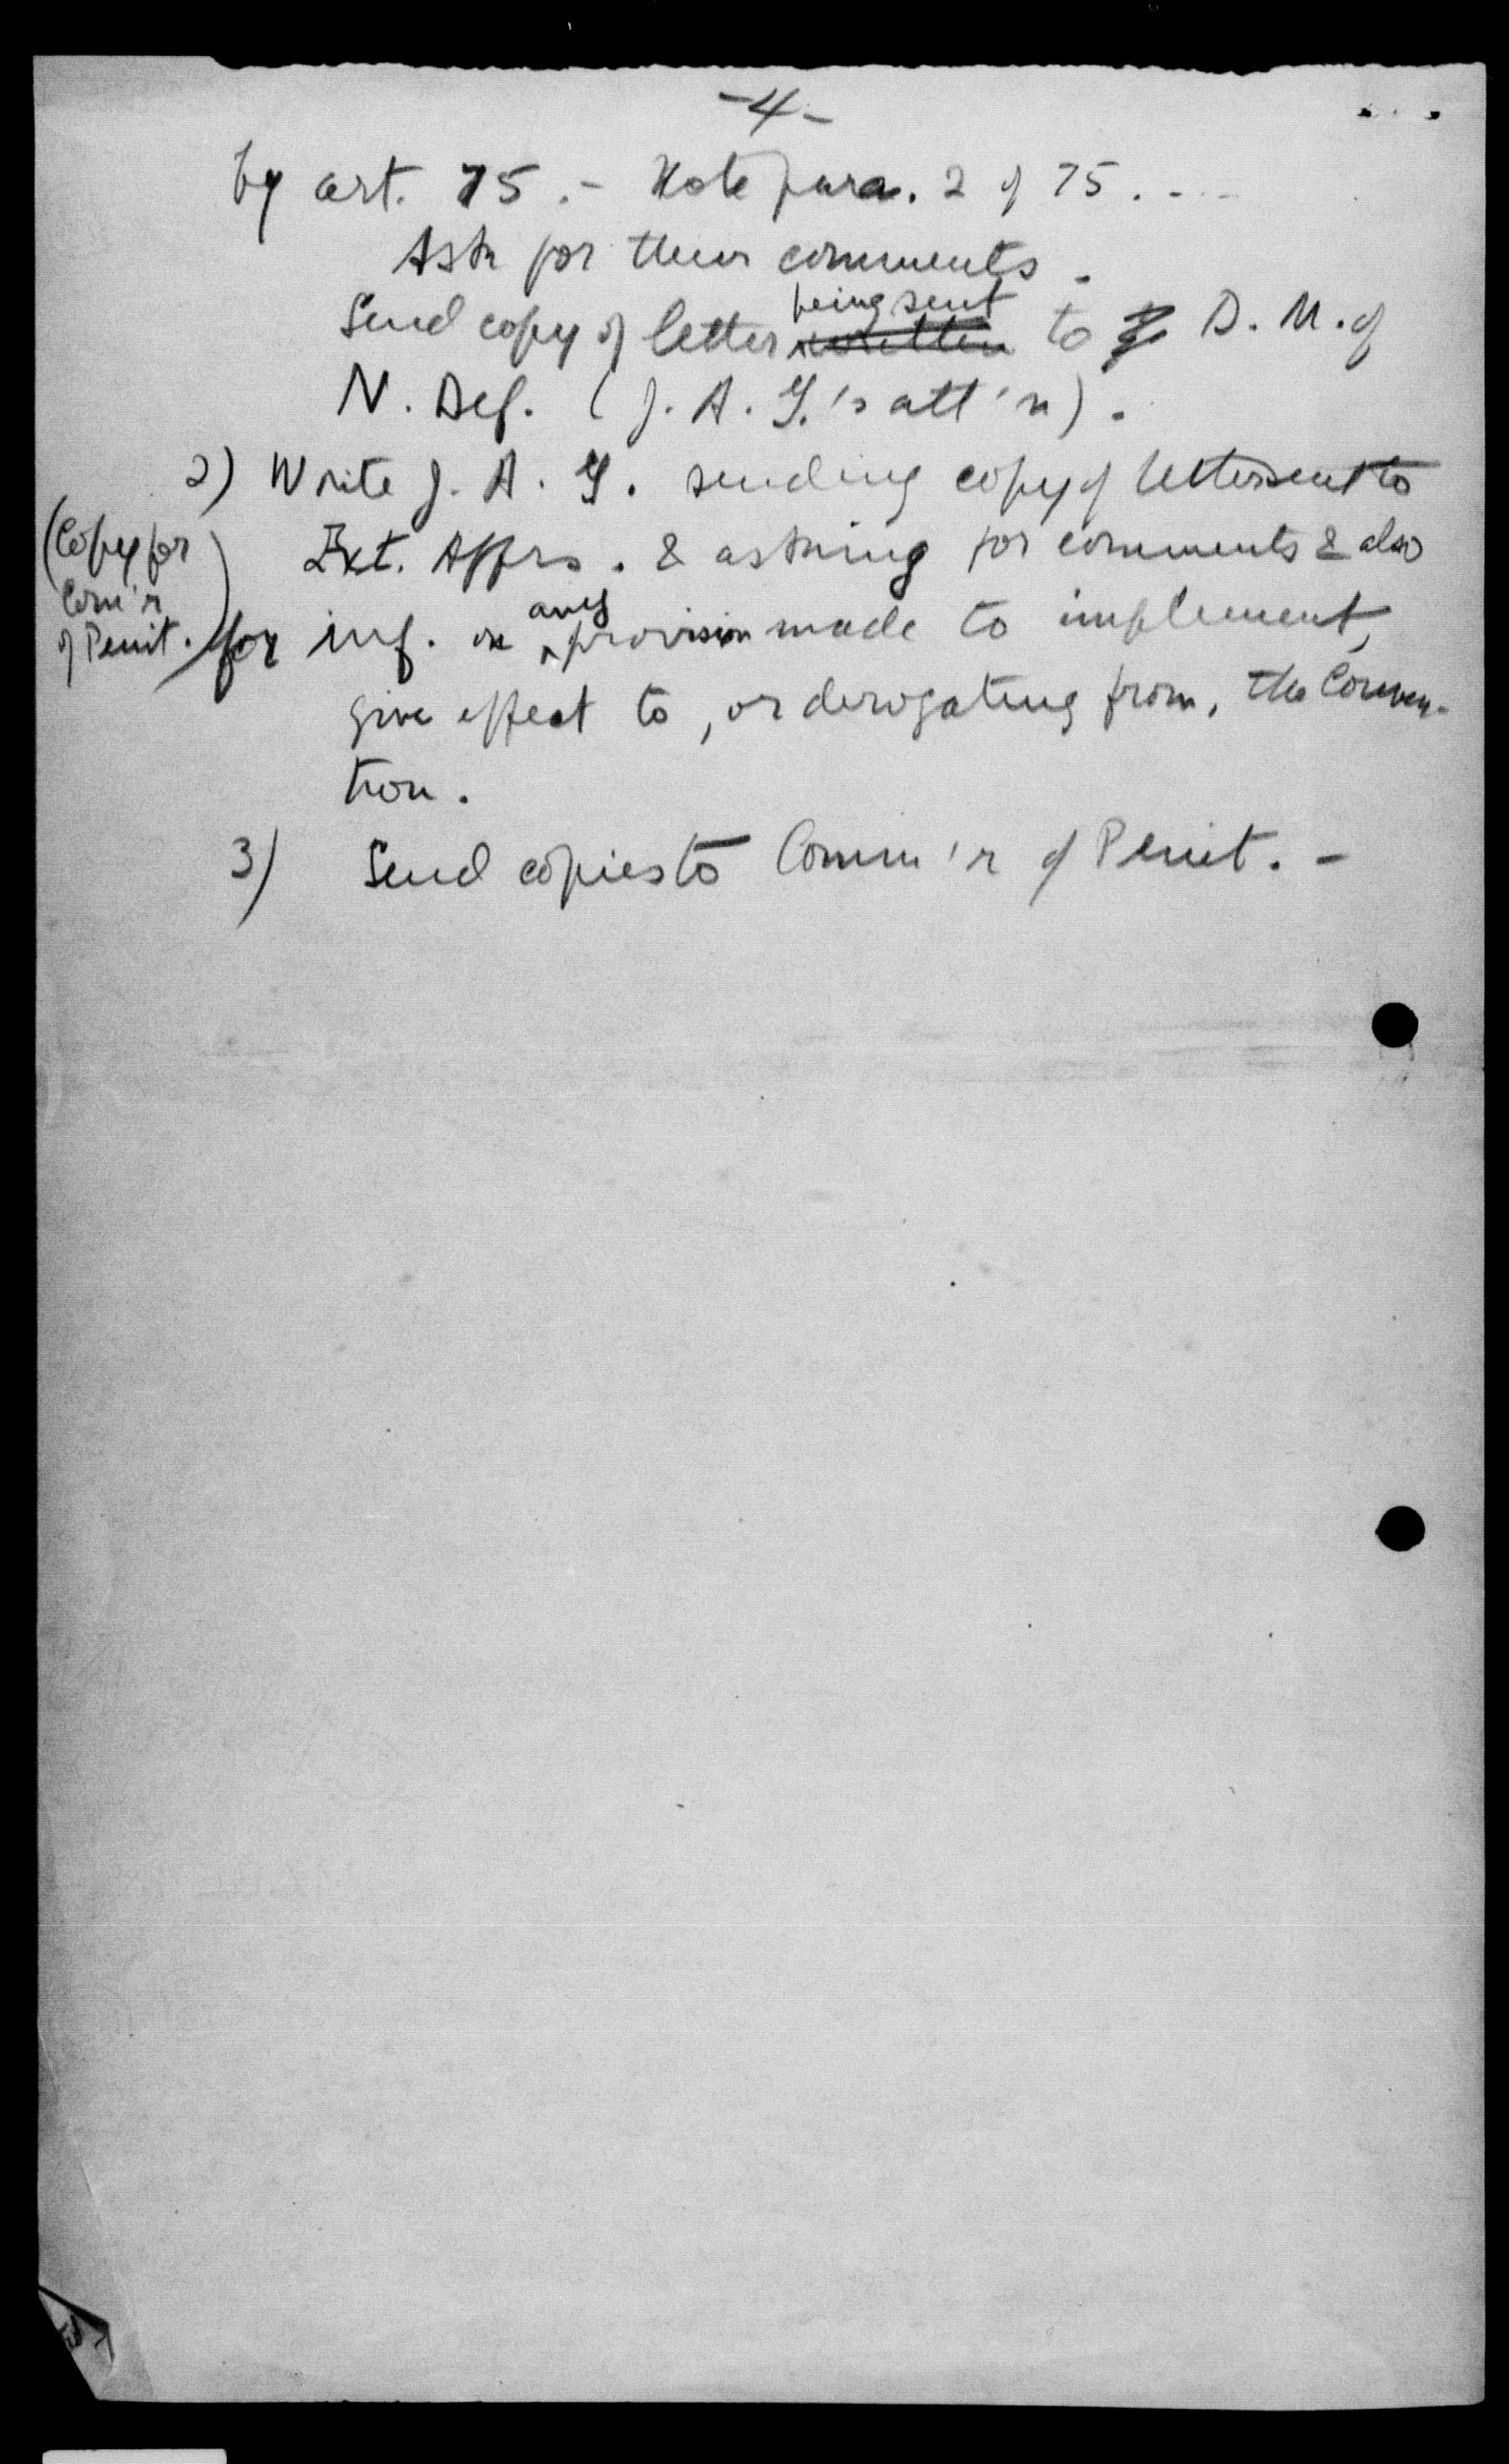 -4-
by art. 75. - Note para. 2 of 75. - -
Ask for their comments.
being sent
Send copy of letter written to D. M. of
N. Def. (J. A. G.'s att'n).
2) Write J. A. G. sending copy of letter sent to
Ext. Affrs. & asking for comments & also
(Copy for
Com'r
of Penit.)
any
for inf. on provision made to implement,
give effect to, or derogating from, the Conven-
tion.
3) Send copies to Comm'r of Penit. -